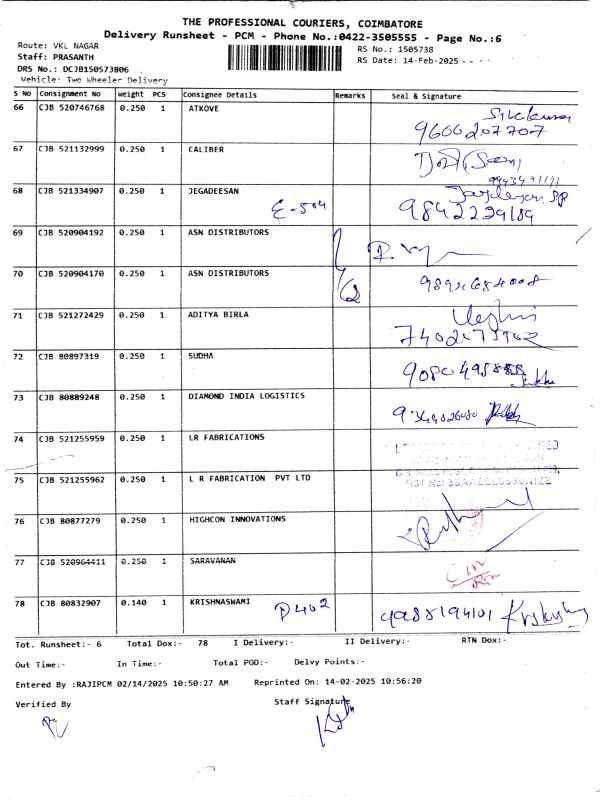 THE PROFESSIONAL COURIERS, COIMBATORE
Delivery Runsheet - PCM - Phone No.:0422-3505555 - Page No.:6
Route: VKL NAGAR
RS No.: 1505738
Staff: PRASANTH
RS Date: 14-Feb-2025
DRS No.: DCJB150573806
Vehicle: Two Wheeler Delivery
S No Consignment No Weight PCS Consignee Details Remarks Seal & Signature
66 CJB 520746768 0.250 1 ATKOVE
9600207707
67 CJB 521132999 0.250 1 CALIBER
68 CJB 521334907 0.250 1 JEGADEESAN
E-504
69 CJB 520904192 0.250 1 ASN DISTRIBUTORS
70 CJB 520904170 0.250 1 ASN DISTRIBUTORS
71 CJB 521272429 0.250 1 ADITYA BIRLA
72 CJB 80897319 0.250 1 SUDHA
73 CJB 80889248 0.250 1 DIAMOND INDIA LOGISTICS
74 CJB 521255959 0.250 1 LR FABRICATIONS
75 CJB 521255962 0.250 1 L R FABRICATION PVT LTD
76 CJB 80877279 0.250 1 HIGHCON INNOVATIONS
77 CJB 520964411 0.250 1 SARAVANAN
78 CJB 80832907 0.140 1 KRISHNASWAMI D402
Tot. Runsheet:- 6 Total Dox:- 78 I Delivery:- II Delivery:- RTN Dox:-
Out Time:- In Time:- Total POD:- Delvy Points:-
Entered By :RAJIPCM 02/14/2025 10:50:27 AM Reprinted On: 14-02-2025 10:56:20
Verified By Staff Signature